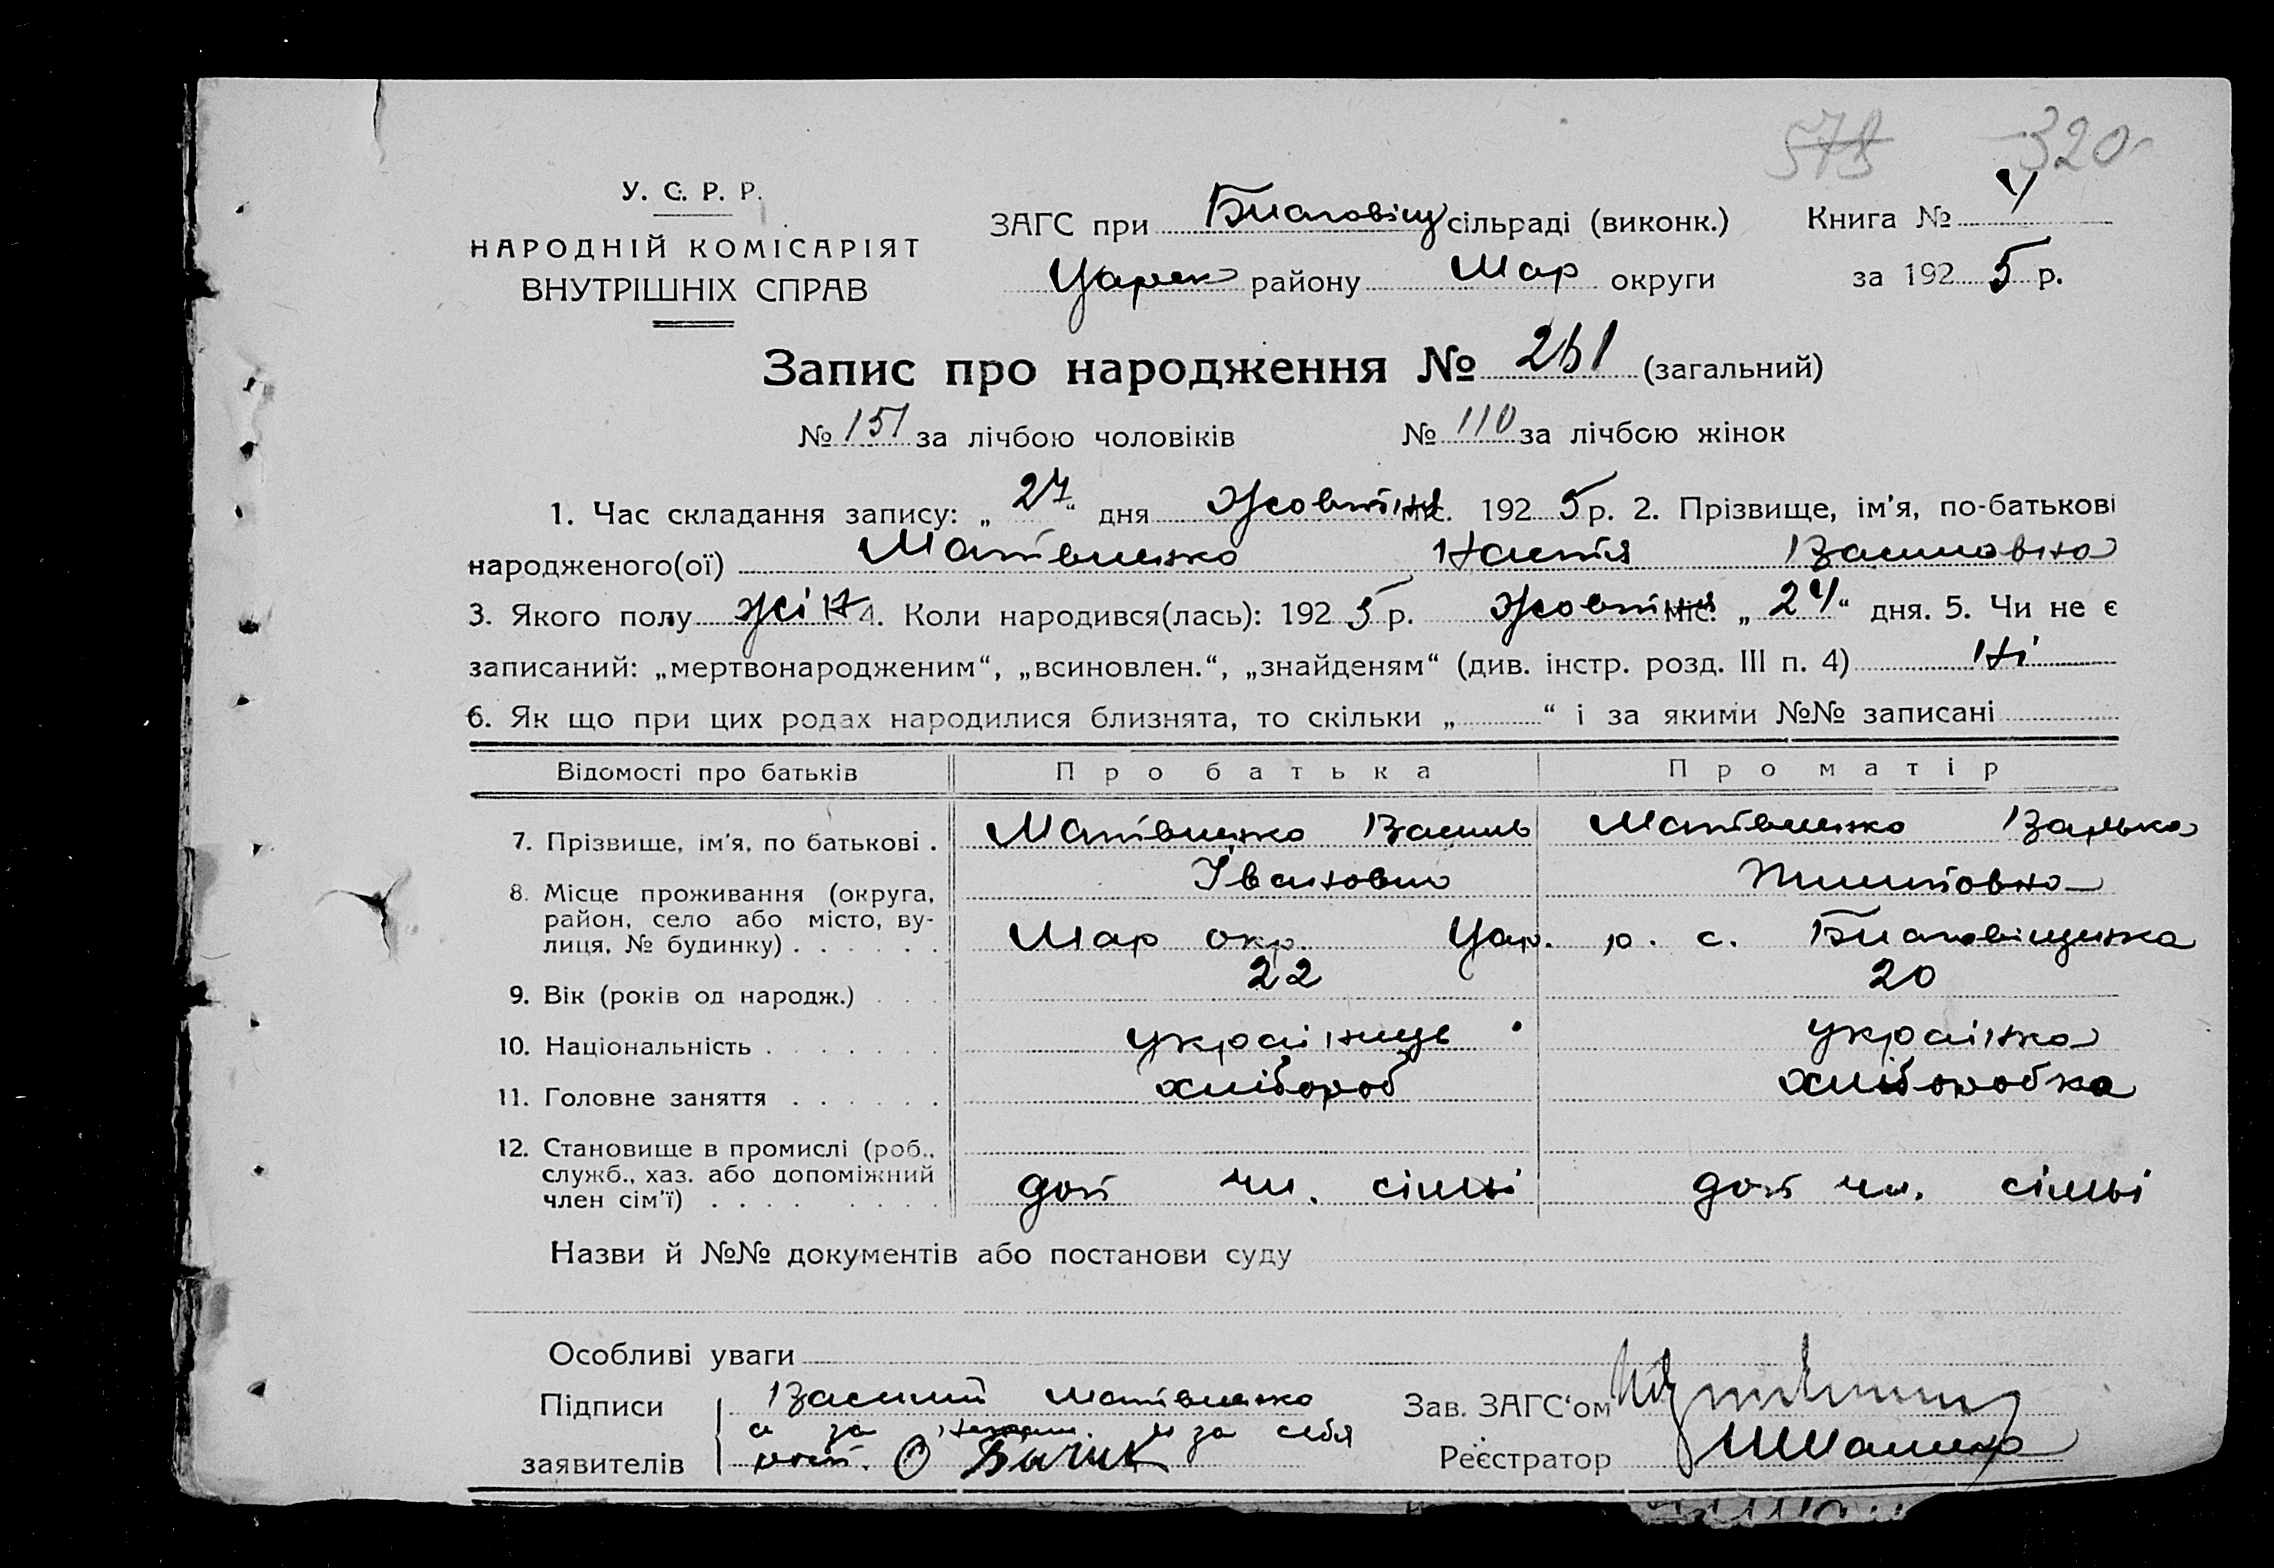 578 320
У. С. Р. Р.
НАРОДНІЙ КОМІСАРІЯТ
ВНУТРІШНІХ СПРАВ
ЗАГС при Благовіщ сільраді (виконк.) Книга № 4
Царек району Мар округи за 1925 р.
Запис про народження № 261 (загальний)
№ 151 за лічбою чоловіків № 110 за лічбою жінок
1. Час складання запису: „27“ дня Жовтня міс. 1925 р. 2. Прізвище, ім'я, по-батькові
народженого(ої) Матвієнко Настя Василовна
3. Якого полу жін 4. Коли народився(лась): 1925 р. Жовтня міс. „24“ дня. 5. Чи не є
записаний: „мертвонародженим“, „всиновлен.“, „знайденям“ (див. інстр. розд. III п. 4) Ні
6. Як що при цих родах народилися близнята, то скільки „ “ і за якими №№ записані
Відомості про батьків Про батька Про матір
7. Прізвище, ім'я, по батькові . Матвієнко Василь Матвієнко Варька
Іванович
8. Місце проживання (округа,
район, село або місто, ву-
лиця, № будинку) . . . . . . Мар окр. Цар. р. с. Благовіщенка
9. Вік (років од народж.) . . . 22 20
10. Національність . . . . . . . українець українка
11. Головне заняття . . . . . . хлібороб хліборобка
12. Становище в промислі (роб.,
служб., хаз. або допоміжний
член сім'ї) . . . . . . . . доп чл. сімьї доп чл. сімьї
Назви й №№ документів або постанови суду
Особливі уваги
Підписи Василий Матвієнко Зав. ЗАГС'ом
а за и за себя
заявителів Реєстратор